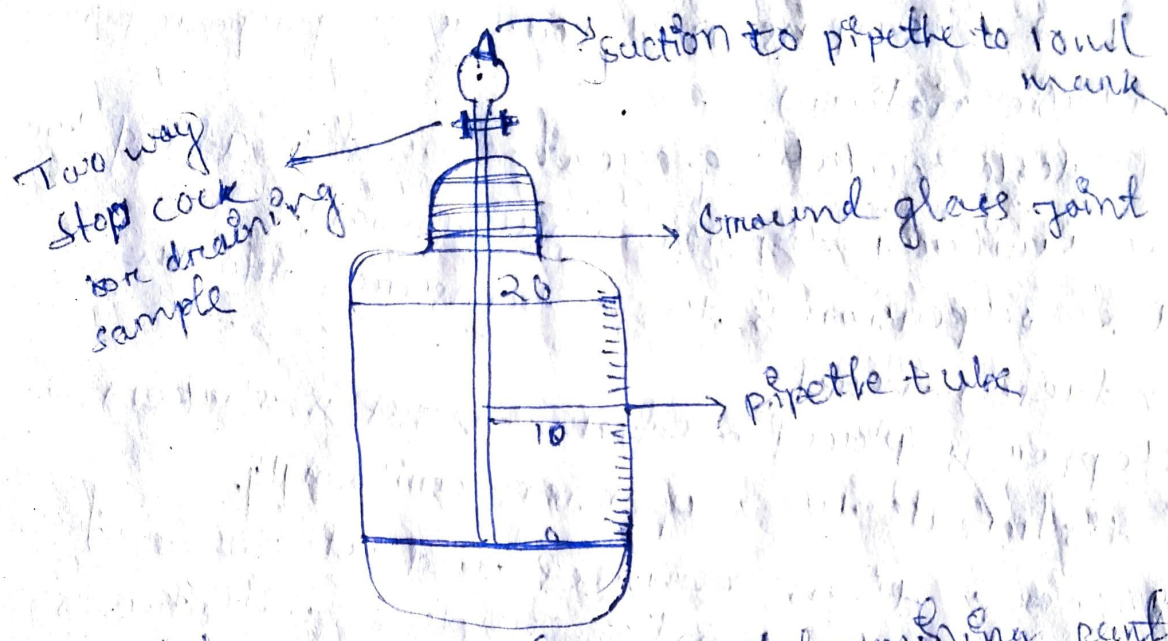 suction to pipethe to
mark
Two way
stop cock
draining
sample
Ground glass joint
20
pipethe tube
10
0